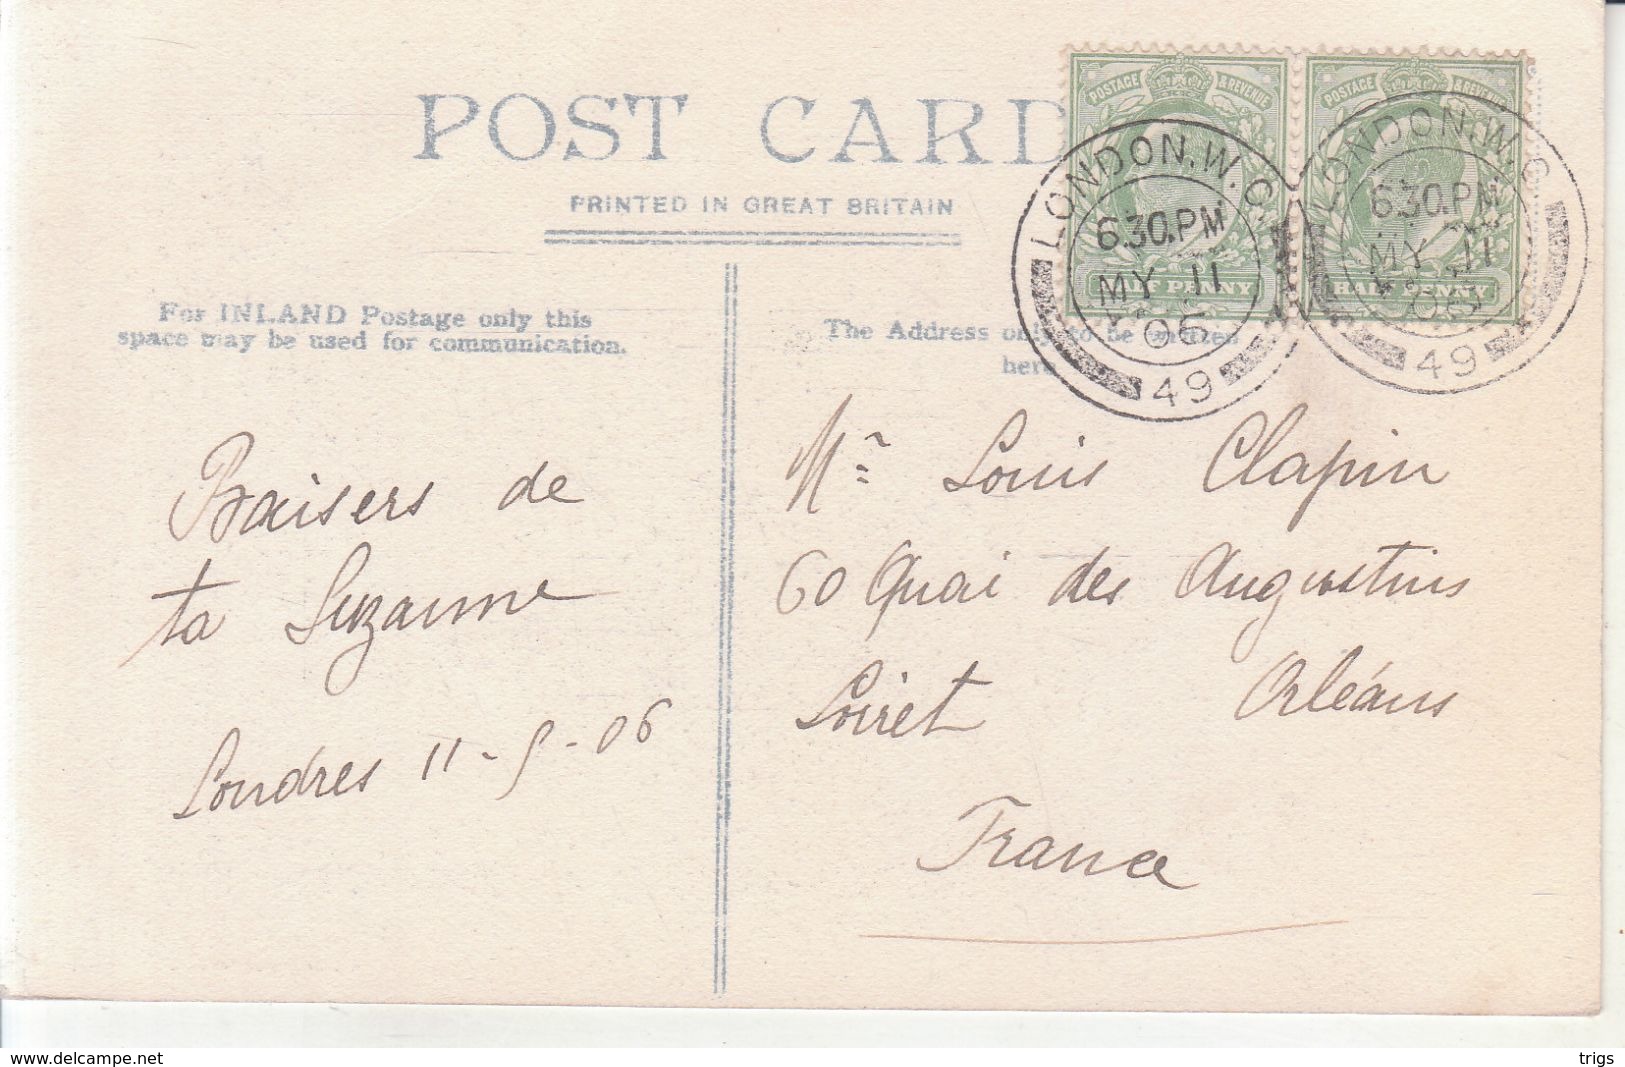 POST CARD
PRINTED IN GREAT BRITAIN
For INLAND Postage only this
space may be used for communication.
The Address only to be written
here
POSTAGE & REVENUE
HALF PENNY
POSTAGE & REVENUE
HALF PENNY
LONDON.W.C.
6.30.PM
MY 11
06
49
LONDON.W.C.
6.30.PM
MY 11
06
49
Baisers de
ta Suzanne
Londres 11-5-06
Mr Louis Clapin
60 Quai des Augustins
Loiret Orléans
France
www.delcampe.net
trigs